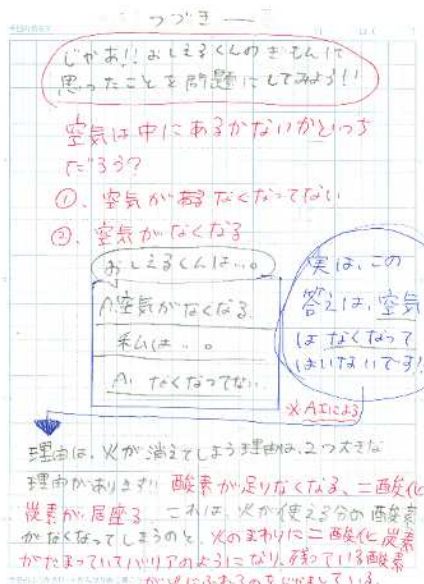 つづき ―
じゃあ!! おしえるくんのぎもんに
思ったことを問題にしてみよう!!
空気は中にあるかないかどっち
だろう?
①. 空気がなくなってない
②. 空気がなくなる
おしえるくんは…。
A.空気がなくなる
私は…。
A. なくなってない
実は、この
答えは、空気
はなくなって
はいないです!
※AIによる
理由は、火が消えてしまう理由は、2つ大きな
理由があります!! 酸素が足りなくなる、二酸化
炭素が居座る これは、火が使える分の酸素
がなくなってしまうのと、火のまわりに二酸化炭素
がたまっていてバリアのようになり、残っている酸素
が火にふれるのをじゃましている